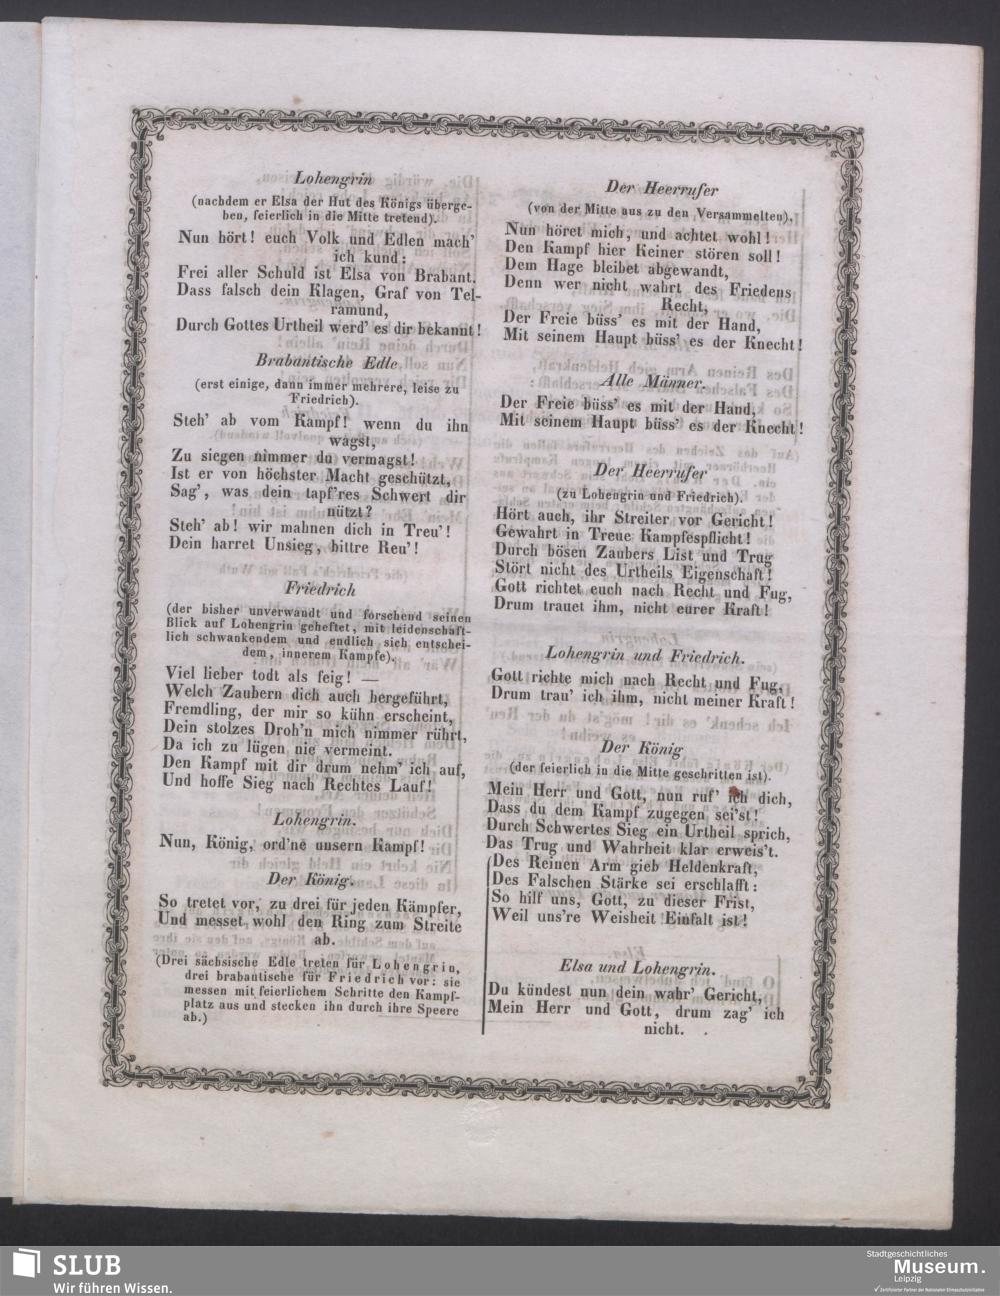 Lohengrin
(nachdem er Elsa der Hut des Königs überge-
ben, feierlich in die Mitte tretend).
Nun hört! euch Volk und Edlen mach'
ich kund:
Frei aller Schuld ist Elsa von Brabant.
Dass falsch dein Klagen, Graf von Tel-
ramund,
Durch Gottes Urtheil werd' es dir bekannt!
Brabantische Edle
(erst einige, dann immer mehrere, leise zu
Friedrich).
Steh' ab vom Kampf! wenn du ihn
wagst,
Zu siegen nimmer du vermagst!
Ist er von höchster Macht geschützt,
Sag', was dein tapf'res Schwert dir
nützt?
Steh' ab! wir mahnen dich in Treu'!
Dein harret Unsieg, bittre Reu'!
Friedrich
(der bisher unverwandt und forschend seinen
Blick auf Lohengrin geheftet, mit leidenschaft-
lich schwankendem und endlich sich entschei-
dem, innerem Kampfe).
Viel lieber todt als feig! —
Welch Zaubern dich auch hergeführt,
Fremdling, der mir so kühn erscheint,
Dein stolzes Droh'n mich nimmer rührt,
Da ich zu lügen nie vermeint.
Den Kampf mit dir drum nehm' ich auf,
Und hoffe Sieg nach Rechtes Lauf!
Lohengrin.
Nun, König, ord'ne unsern Kampf!
Der König.
So tretet vor, zu drei für jeden Kämpfer,
Und messet wohl den Ring zum Streite
ab.
(Drei sächsische Edle treten für Lohengrin,
drei brabantische für Friedrich vor: sie
messen mit feierlichem Schritte den Kampf-
platz aus und stecken ihn durch ihre Speere
ab.)
Der Heerrufer
(von der Mitte aus zu den Versammelten).
Nun höret mich, und achtet wohl!
Den Kampf hier Keiner stören soll!
Dem Hage bleibet abgewandt,
Denn wer nicht wahrt des Friedens
Recht,
Der Freie büss' es mit der Hand,
Mit seinem Haupt büss' es der Knecht!
Alle Männer.
Der Freie büss' es mit der Hand,
Mit seinem Haupt büss' es der Knecht!
Der Heerrufer
(zu Lohengrin und Friedrich).
Hört auch, ihr Streiter vor Gericht!
Gewahrt in Treue Kampfespflicht!
Durch bösen Zaubers List und Trug
Stört nicht des Urtheils Eigenschaft!
Gott richtet euch nach Recht und Fug,
Drum trauet ihm, nicht eurer Kraft!
Lohengrin und Friedrich.
Gott richte mich nach Recht und Fug,
Drum trau' ich ihm, nicht meiner Kraft!
Der König
(der feierlich in die Mitte geschritten ist).
Mein Herr und Gott, nun ruf' ich dich,
Dass du dem Kampf zugegen sei'st!
Durch Schwertes Sieg ein Urtheil sprich,
Das Trug und Wahrheit klar erweis't.
Des Reinen Arm gieb Heldenkraft,
Des Falschen Stärke sei erschlafft:
So hilf uns, Gott, zu dieser Frist,
Weil uns're Weisheit Einfalt ist!
Elsa und Lohengrin.
Du kündest nun dein wahr' Gericht,
Mein Herr und Gott, drum zag' ich
nicht.
SLUB
Wir führen Wissen.
Stadtgeschichtliches
Museum.
Leipzig
Zertifizierter Partner der Nationalen Klimaschutzinitiative